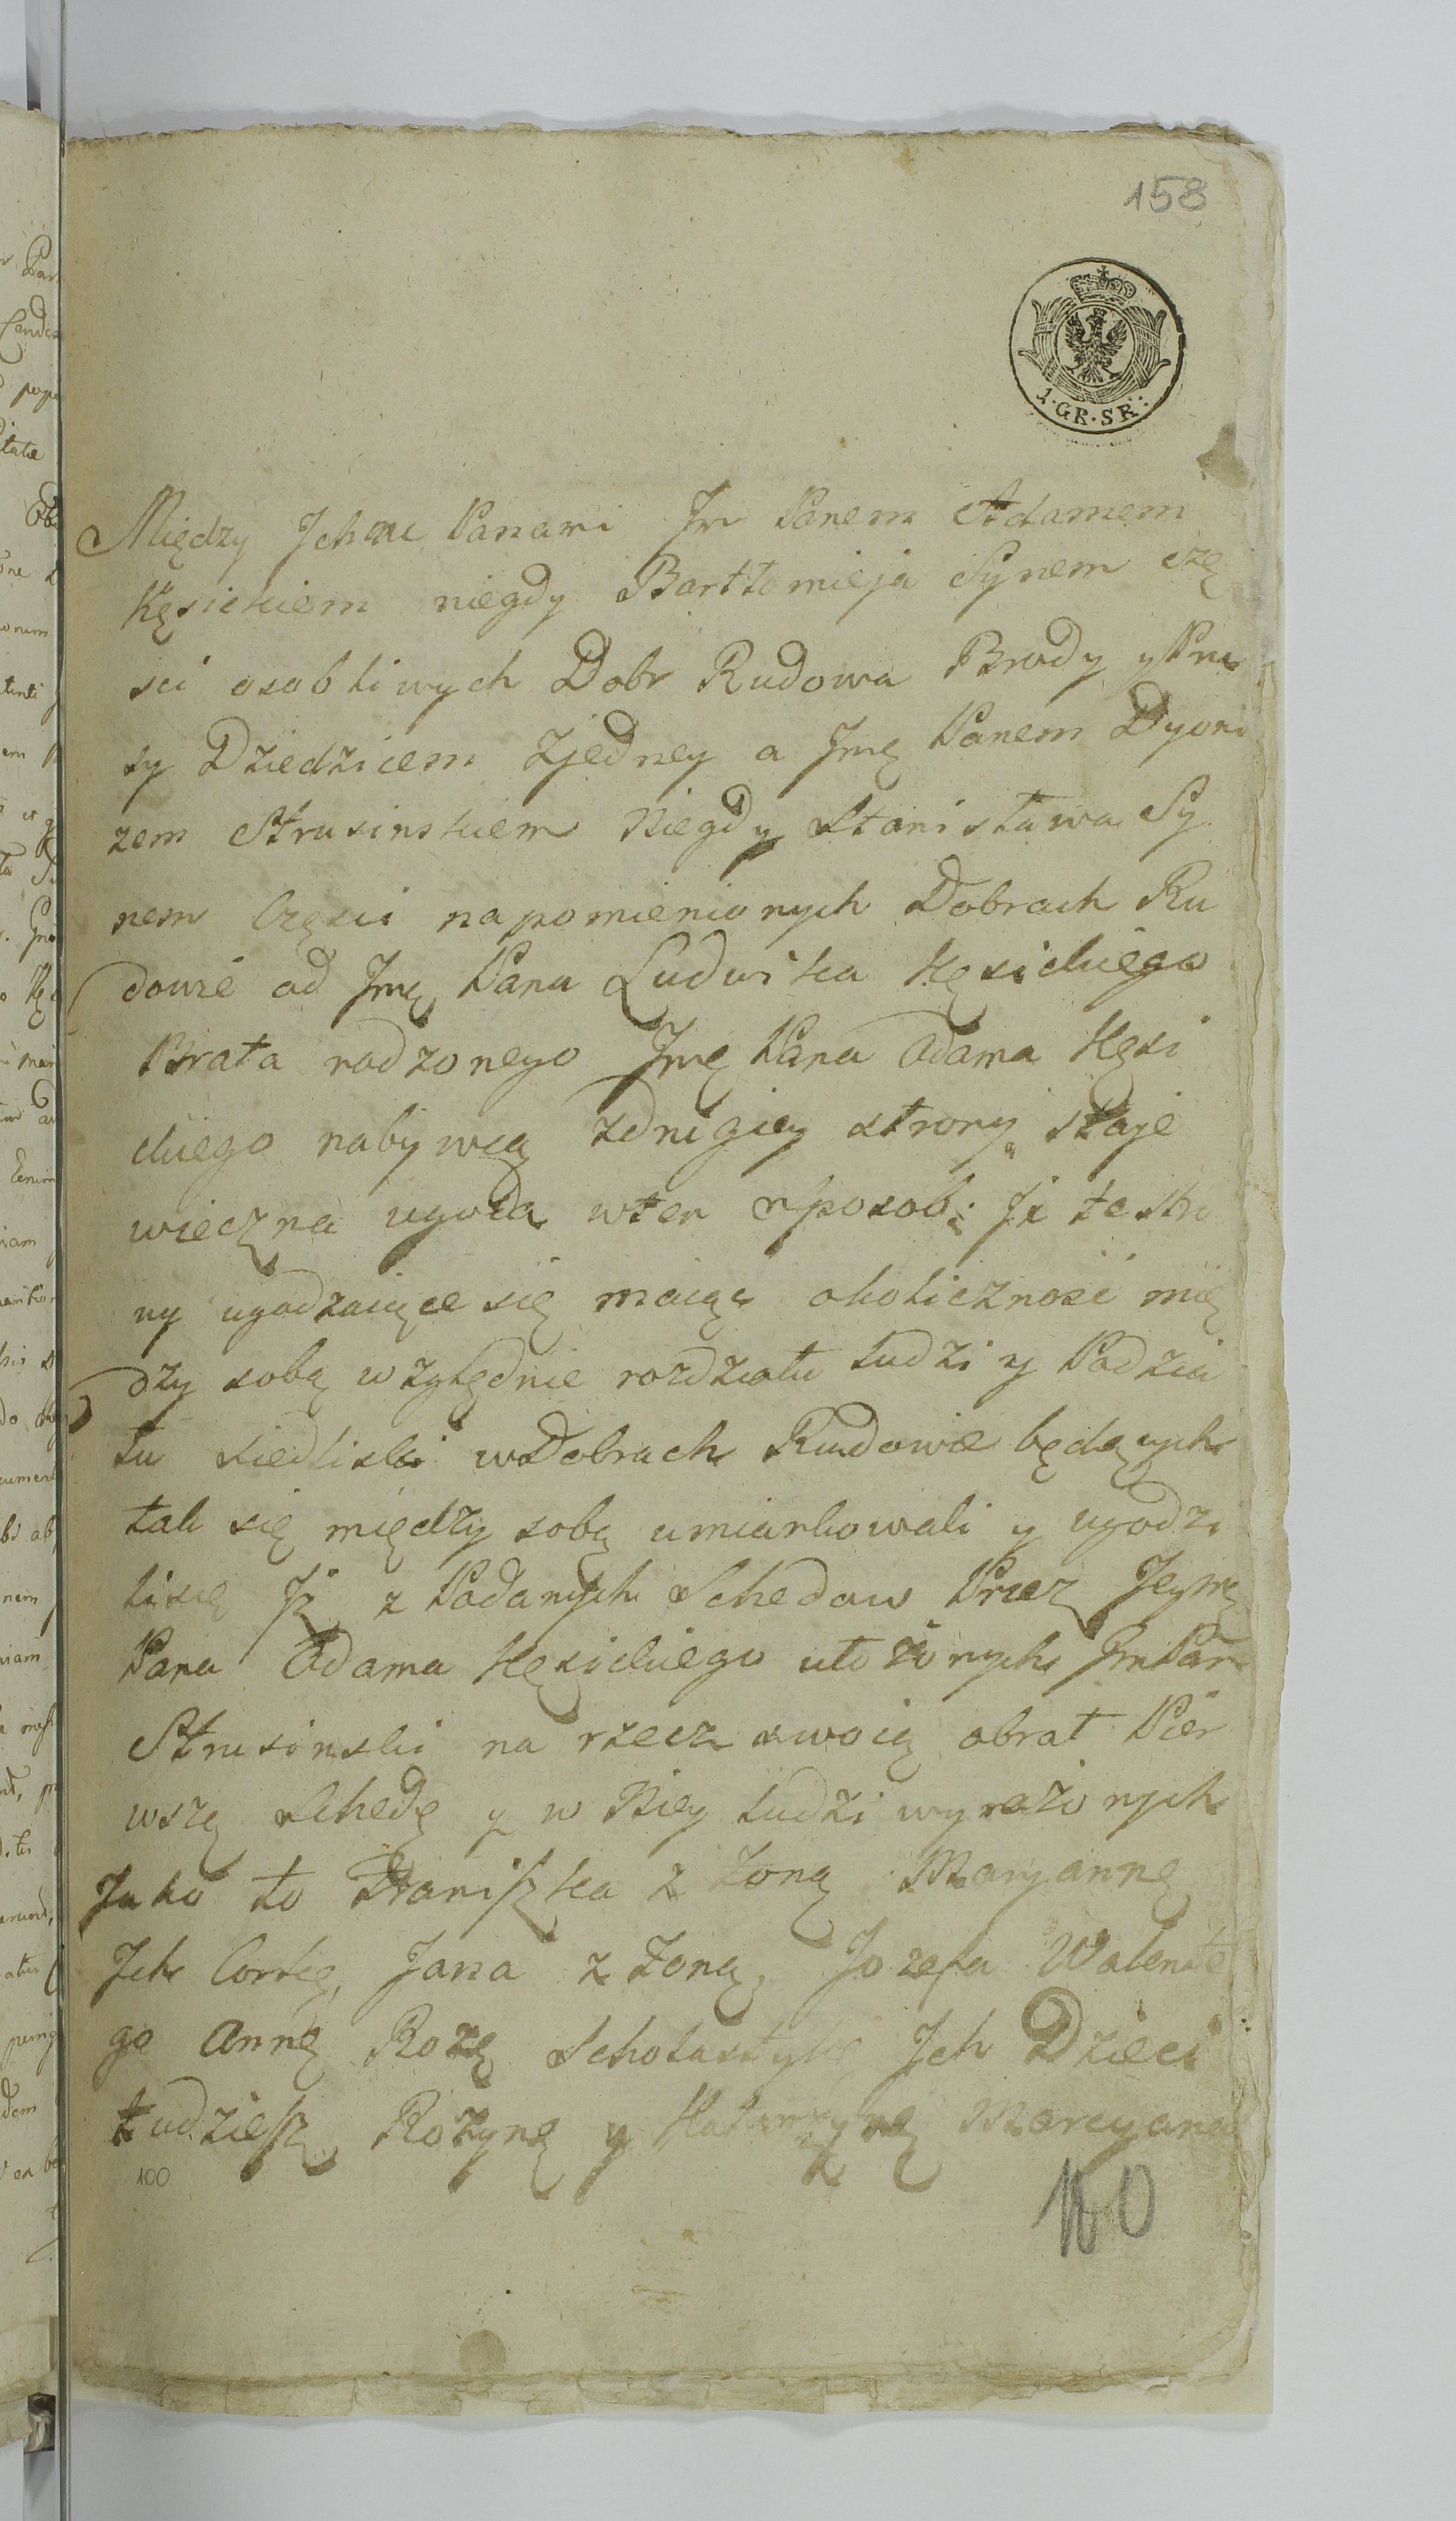 158
1. GR. SR:
Między Jchmc Panami Jm Panem Adamem
Kęsickiem niegdy Bartłomieja Synem czę
sci osobliwych Dobr Rudowa Brody y Pru
sy Dziedzicem zjedney a Jmę Panem Dyoni
zem Strusinskiem Niegdy Stanisława Sy
nem Częsci napomienionych Dobrach Ru
dowie od Jmę Pana Ludwika Kęsickiego
Brata rodzonego Jmę Pana Adama Kęsi
ckiego nabywcą zdrugiey strony staje
wieczna ugoda wten sposob: Jż te stro
ny ugadzaiące się maiąc okoliczność mię
dzy sobą względnie rozdziału ludzi y Podzia
łu siedlisk wDobrach Rudowie będących
tak się między sobą umiarkowali y ugodzi
lisię Jż z Podanych Schedow Przez Jeymę
Pana Adama Kęsickiego ułożonych JmPan
Strusinski na rzecz swoię obrał Pier
wszę Schedę y w Niey ludzi wyrażonych
Jako to Staniszka z żoną Maryannę
Jch Corkę, Jana z żoną, Jozefa Walente
go Annę Rozę Scholastykę Jch Dzieci
tudziesz Rozynę y Katarzynę Marcyana
100